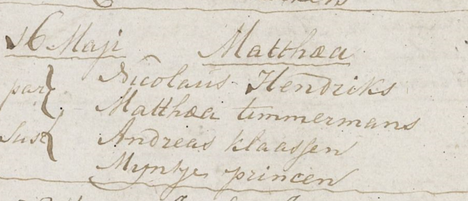 16 Maji Matthæa
par Nicolaus Hendriks
Matthæa timmermans
Susc Andreas klaassen
Myntje princen